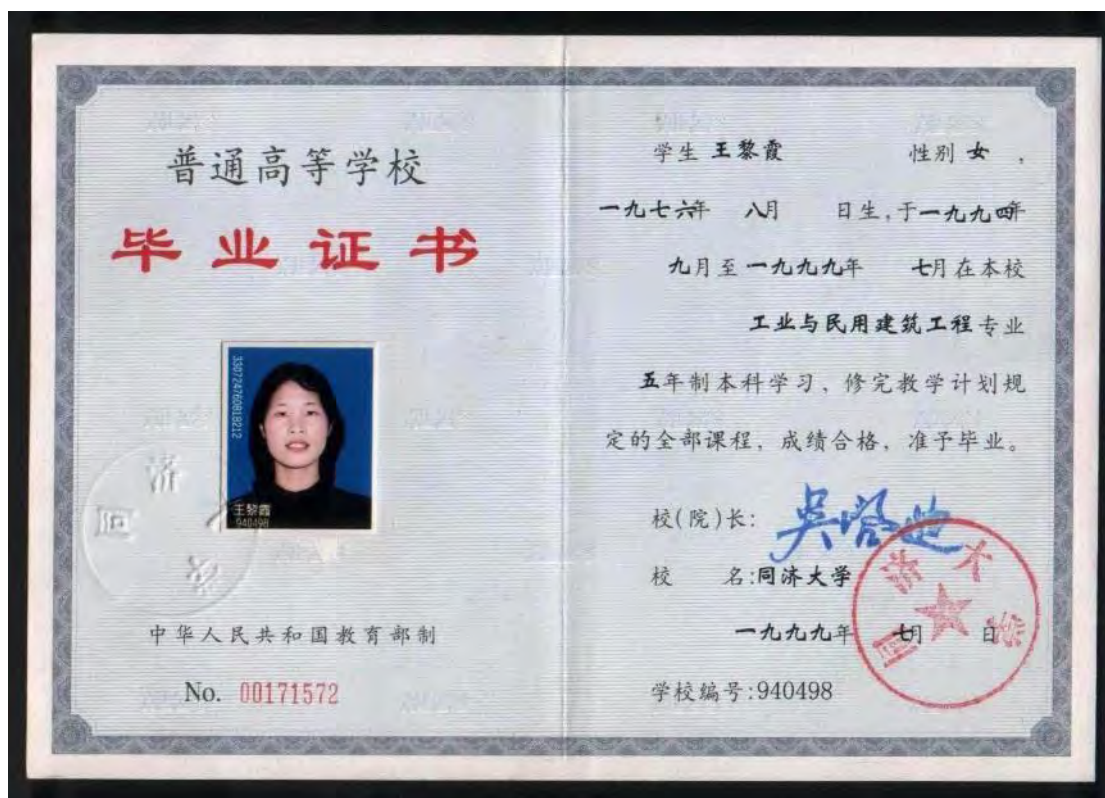 普通高等学校
毕业证书
330724760818212
王黎霞
940498
中华人民共和国教育部制
No. 00171572
学生 王黎霞 性别 女 ,
一九七六年 八月 日生,于一九九四年
九月至一九九九年 七月在本校
工业与民用建筑工程专业
五年制本科学习,修完教学计划规
定的全部课程,成绩合格,准予毕业。
校(院)长:
校 名:同济大学
一九九九年 七月 日
学校编号:940498
同济大学